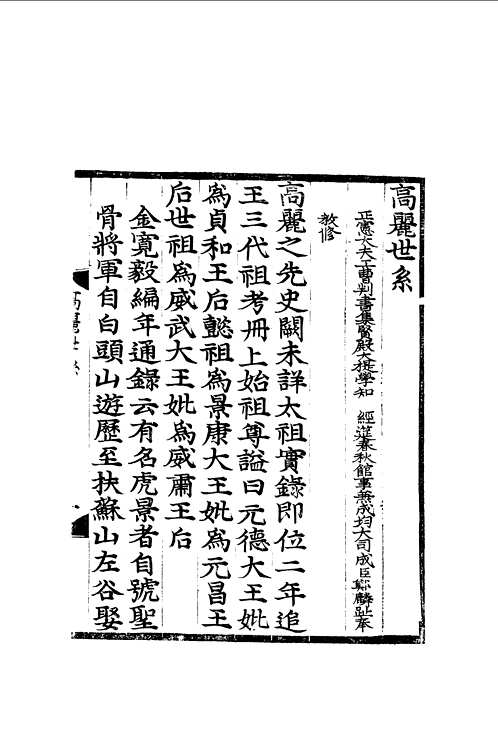 高麗世系
正憲大夫工曹判書集賢殿大提學知　經筵春秋館事兼成均大司成臣鄭麟趾奉
教修
高麗之先史闕未詳太祖實錄即位二年追
王三代祖考冊上始祖尊謚曰元德大王妣
爲貞和王后懿祖爲景康大王妣爲元昌王
后世祖爲威武大王妣爲威肅王后
金寬毅編年通錄云有名虎景者自號聖
骨將軍自白頭山遊歷至扶蘇山左谷娶
高麗世系
一